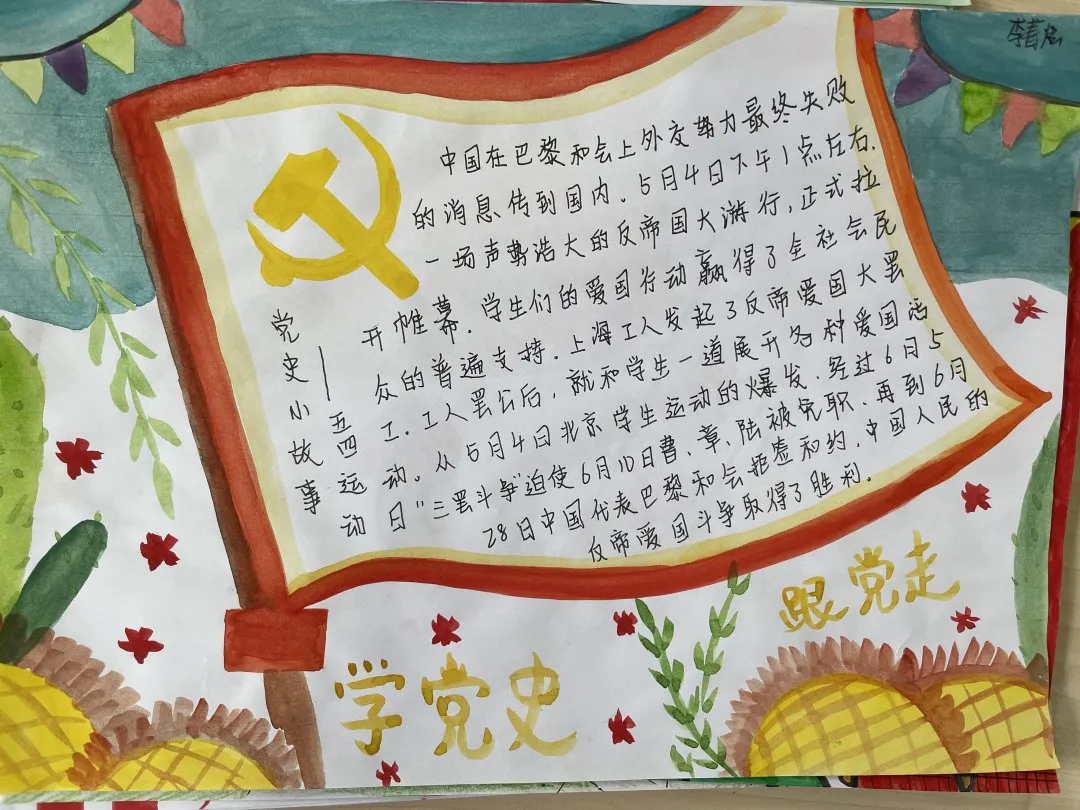 中国在巴黎和会上外交努力最终失败
的消息传到国内.5月4日下午1点左右.
一场声势浩大的反帝国大游行,正式拉
开帷幕.学生们的爱国行动赢得了全社会民
众的普遍支持.上海工人发起了反帝爱国大罢
工.工人罢公后,就和学生一道展开各种爱国活
动。从5月4日北京学生运动的爆发.经过6月5
日"三罢斗争"迫使6月10日曹、章、陆被免职.再到6月
28日中国代表巴黎和会拒签和约.中国人民的
反帝爱国斗争取得了胜利.
党史小故事
——五四运动
学党史
眼党走